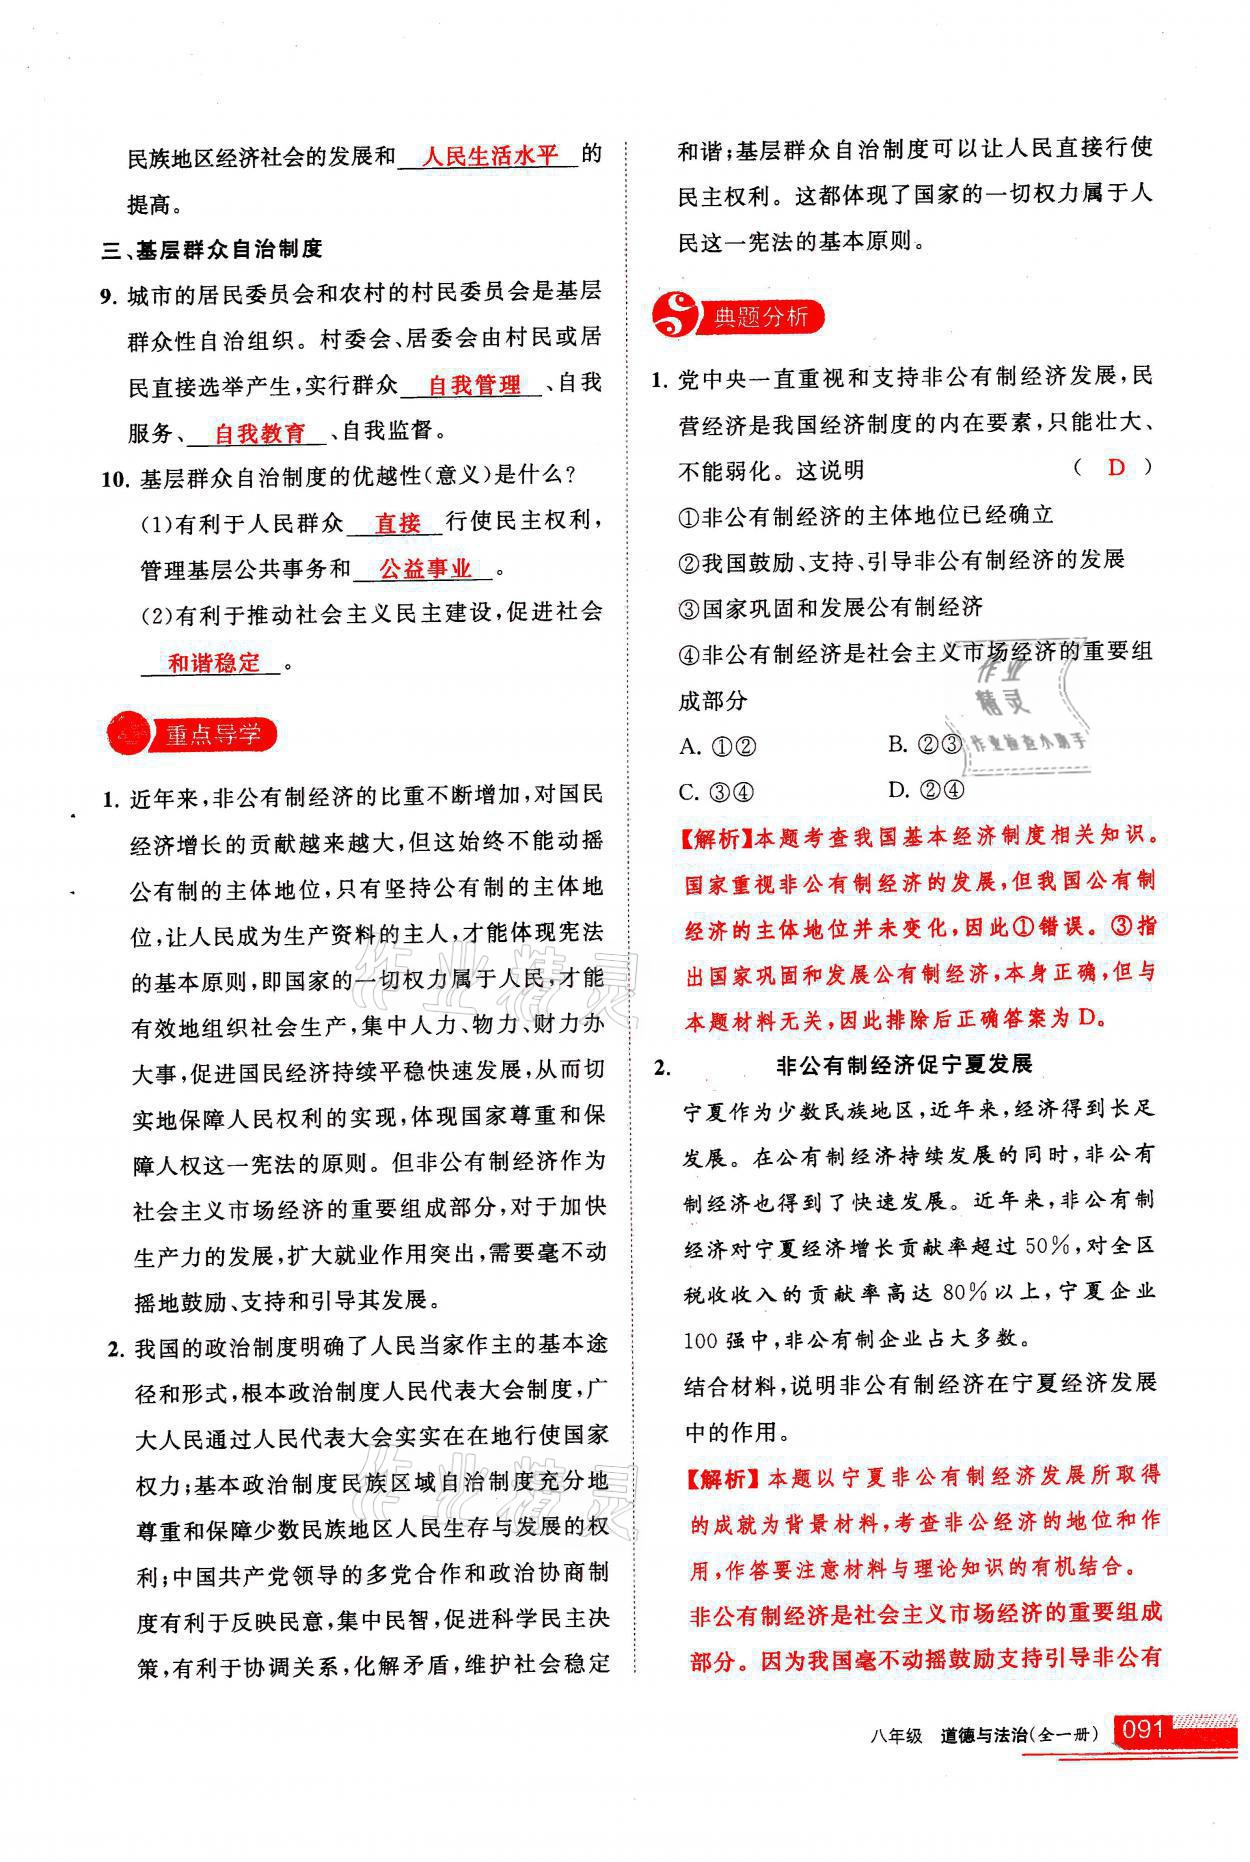 民族地区经济社会的发展和 人民生活水平 的
提高。
三、基层群众自治制度
9. 城市的居民委员会和农村的村民委员会是基层
群众性自治组织。村委会、居委会由村民或居
民直接选举产生,实行群众 自我管理 、自我
服务、 自我教育 、自我监督。
10. 基层群众自治制度的优越性(意义)是什么?
(1)有利于人民群众 直接 行使民主权利,
管理基层公共事务和 公益事业 。
(2)有利于推动社会主义民主建设,促进社会
和谐稳定 。
重点导学
1. 近年来,非公有制经济的比重不断增加,对国民
经济增长的贡献越来越大,但这始终不能动摇
公有制的主体地位,只有坚持公有制的主体地
位,让人民成为生产资料的主人,才能体现宪法
的基本原则,即国家的一切权力属于人民,才能
有效地组织社会生产,集中人力、物力、财力办
大事,促进国民经济持续平稳快速发展,从而切
实地保障人民权利的实现,体现国家尊重和保
障人权这一宪法的原则。但非公有制经济作为
社会主义市场经济的重要组成部分,对于加快
生产力的发展,扩大就业作用突出,需要毫不动
摇地鼓励、支持和引导其发展。
2. 我国的政治制度明确了人民当家作主的基本途
径和形式,根本政治制度人民代表大会制度,广
大人民通过人民代表大会实实在在地行使国家
权力;基本政治制度民族区域自治制度充分地
尊重和保障少数民族地区人民生存与发展的权
利;中国共产党领导的多党合作和政治协商制
度有利于反映民意,集中民智,促进科学民主决
策,有利于协调关系,化解矛盾,维护社会稳定
和谐;基层群众自治制度可以让人民直接行使
民主权利。这都体现了国家的一切权力属于人
民这一宪法的基本原则。
典题分析
1. 党中央一直重视和支持非公有制经济发展,民
营经济是我国经济制度的内在要素,只能壮大、
不能弱化。这说明 ( D )
①非公有制经济的主体地位已经确立
②我国鼓励、支持、引导非公有制经济的发展
③国家巩固和发展公有制经济
④非公有制经济是社会主义市场经济的重要组
成部分
A. ①② B. ②③
C. ③④ D. ②④
【解析】本题考查我国基本经济制度相关知识。
国家重视非公有制经济的发展,但我国公有制
经济的主体地位并未变化,因此①错误。③指
出国家巩固和发展公有制经济,本身正确,但与
本题材料无关,因此排除后正确答案为 D。
2. 非公有制经济促宁夏发展
宁夏作为少数民族地区,近年来,经济得到长足
发展。在公有制经济持续发展的同时,非公有
制经济也得到了快速发展。近年来,非公有制
经济对宁夏经济增长贡献率超过 50%,对全区
税收收入的贡献率高达 80%以上,宁夏企业
100 强中,非公有制企业占大多数。
结合材料,说明非公有制经济在宁夏经济发展
中的作用。
【解析】本题以宁夏非公有制经济发展所取得
的成就为背景材料,考查非公经济的地位和作
用,作答要注意材料与理论知识的有机结合。
非公有制经济是社会主义市场经济的重要组成
部分。因为我国毫不动摇鼓励支持引导非公有
作业
精灵
作业检查小助手
作业精灵
作业精灵
八年级 道德与法治(全一册) 091